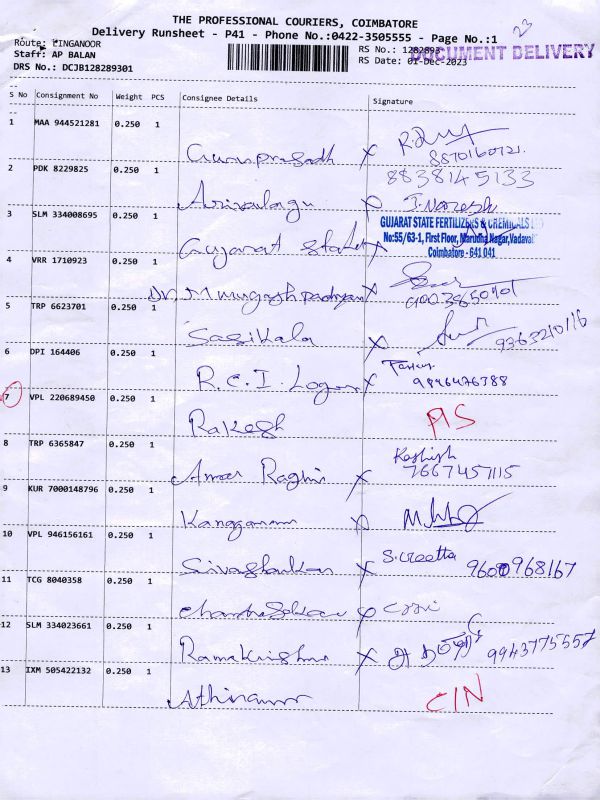 THE PROFESSIONAL COURIERS, COIMBATORE
Delivery Runsheet - P41 - Phone No.:0422-3505555 - Page No.:1
23
Route: LINGANOOR
RS No.: 1282893
DOCUMENT DELIVERY
Staff: AP BALAN
RS Date: 01-Dec-2023
DRS No.: DCJB128289301
S No Consignment No Weight PCS Consignee Details Signature
1 MAA 944521281 0.250 1
Guruprasadh x
8870160721.
2 PDK 8229825 0.250 1
8838145133
Arivalagu x J. Naresh
3 SLM 334008695 0.250 1
GUJARAT STATE FERTILIZERS & CHEMICALS LTD
No:55/63-1, First Floor, Marudha Nagar, Vadavalli
Gujarat State x
Coimbatore - 641 041
4 VRR 1710923 0.250 1
Dr. x
5 TRP 6623701 0.250 1
Sasikala x
9363210116
6 DPI 164406 0.250 1
R.C.I x
9846476388
7 VPL 220689450 0.250 1
Rakesh
8 TRP 6365847 0.250 1
Amar x
7667457115
9 KUR 7000148796 0.250 1
x
10 VPL 946156161 0.250 1
x
9600968167
11 TCG 8040358 0.250 1
12 SLM 334023661 0.250 1
Ramakrishna x
9943775557
13 IXM 505422132 0.250 1
CIN